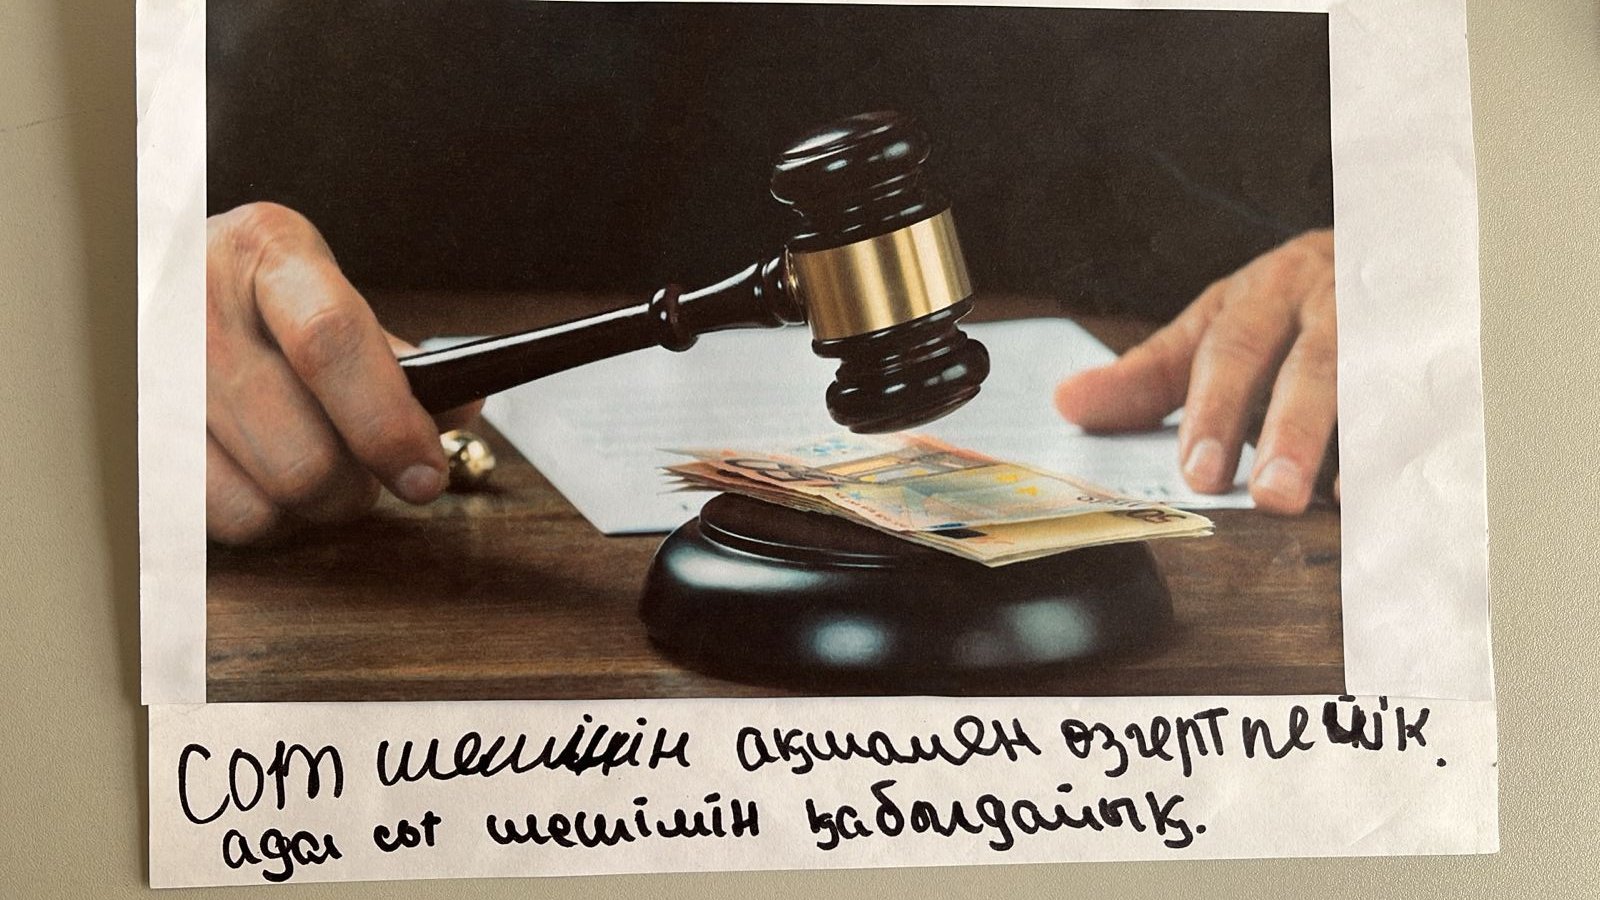 Сот шешімін ақшамен өзгертпейік.
адал сот шешімін қабылдайық.